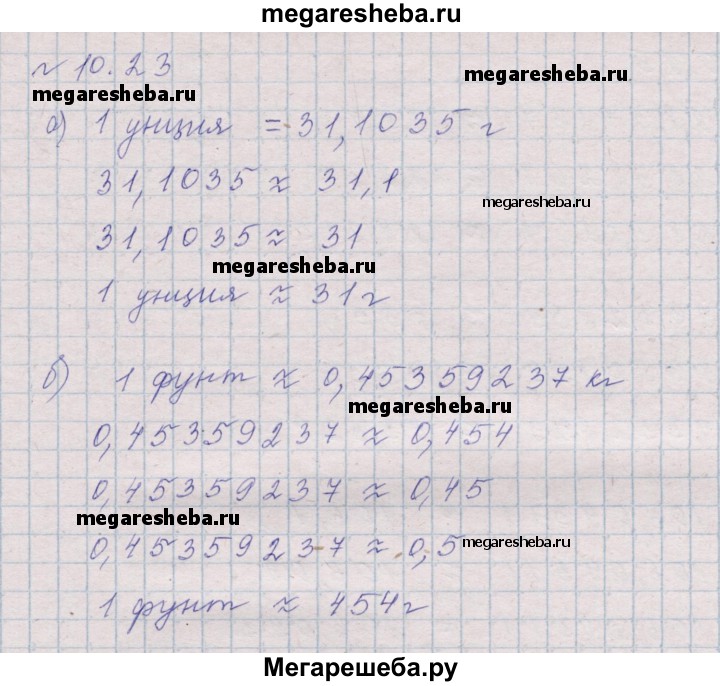 megaresheba.ru
№ 10.23
megaresheba.ru
megaresheba.ru
а) 1 унция = 31,1035 г
31,1035 ≈ 31,1
megaresheba.ru
31,1035 ≈ 31
megaresheba.ru
1 унция ≈ 31 г
б) 1 фунт ≈ 0,45359237 кг
megaresheba.ru
0,45359237 ≈ 0,454
0,45359237 ≈ 0,45
megaresheba.ru
0,45359237 ≈ 0,5
megaresheba.ru
1 фунт ≈ 454 г
Мегарешеба.ру